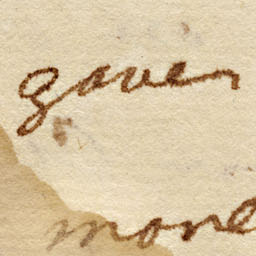 gaven
more